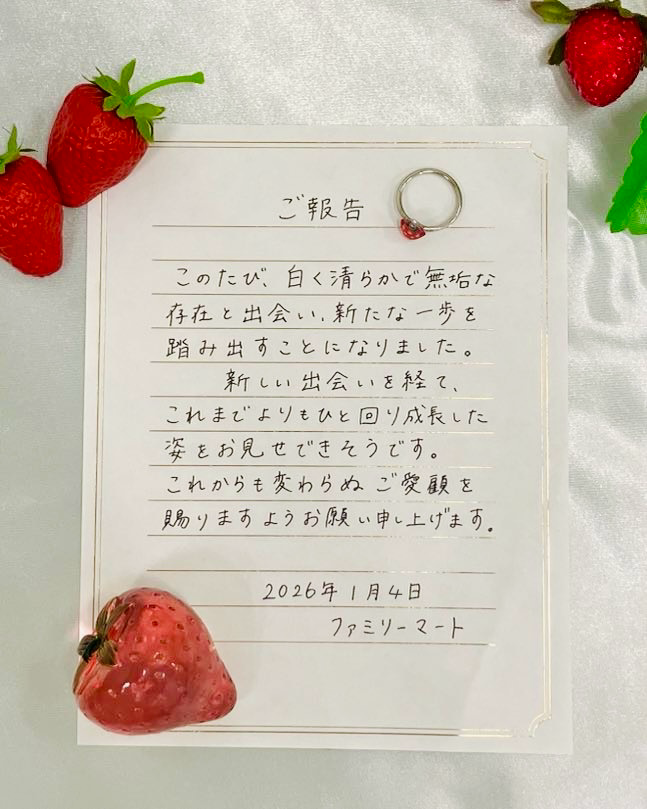 ご報告
このたび、白く清らかで無垢な
存在と出会い、新たな一歩を
踏み出すことになりました。
新しい出会いを経て、
これまでよりもひと回り成長した
姿をお見せできそうです。
これからも変わらぬご愛顧を
賜りますようお願い申し上げます。
2026年1月4日
ファミリーマート